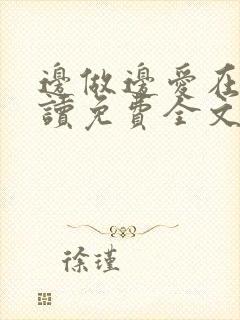 邊做邊愛在
讀免費全文
徐瑾